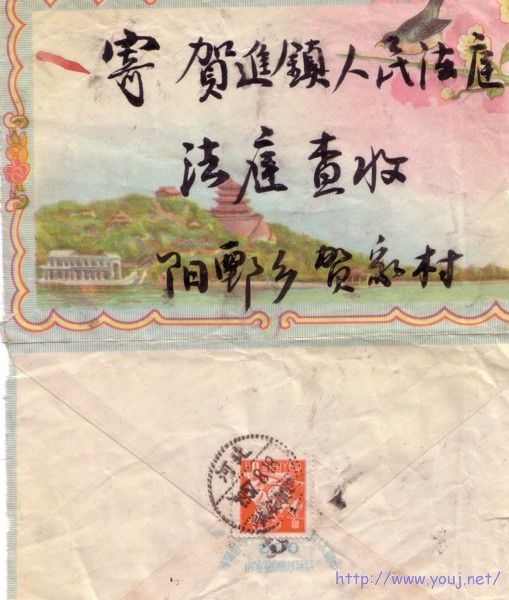 寄 賀進鎮人民法庭
法庭查收
阳鄄乡贺家村
河北
http://www.youj.net/